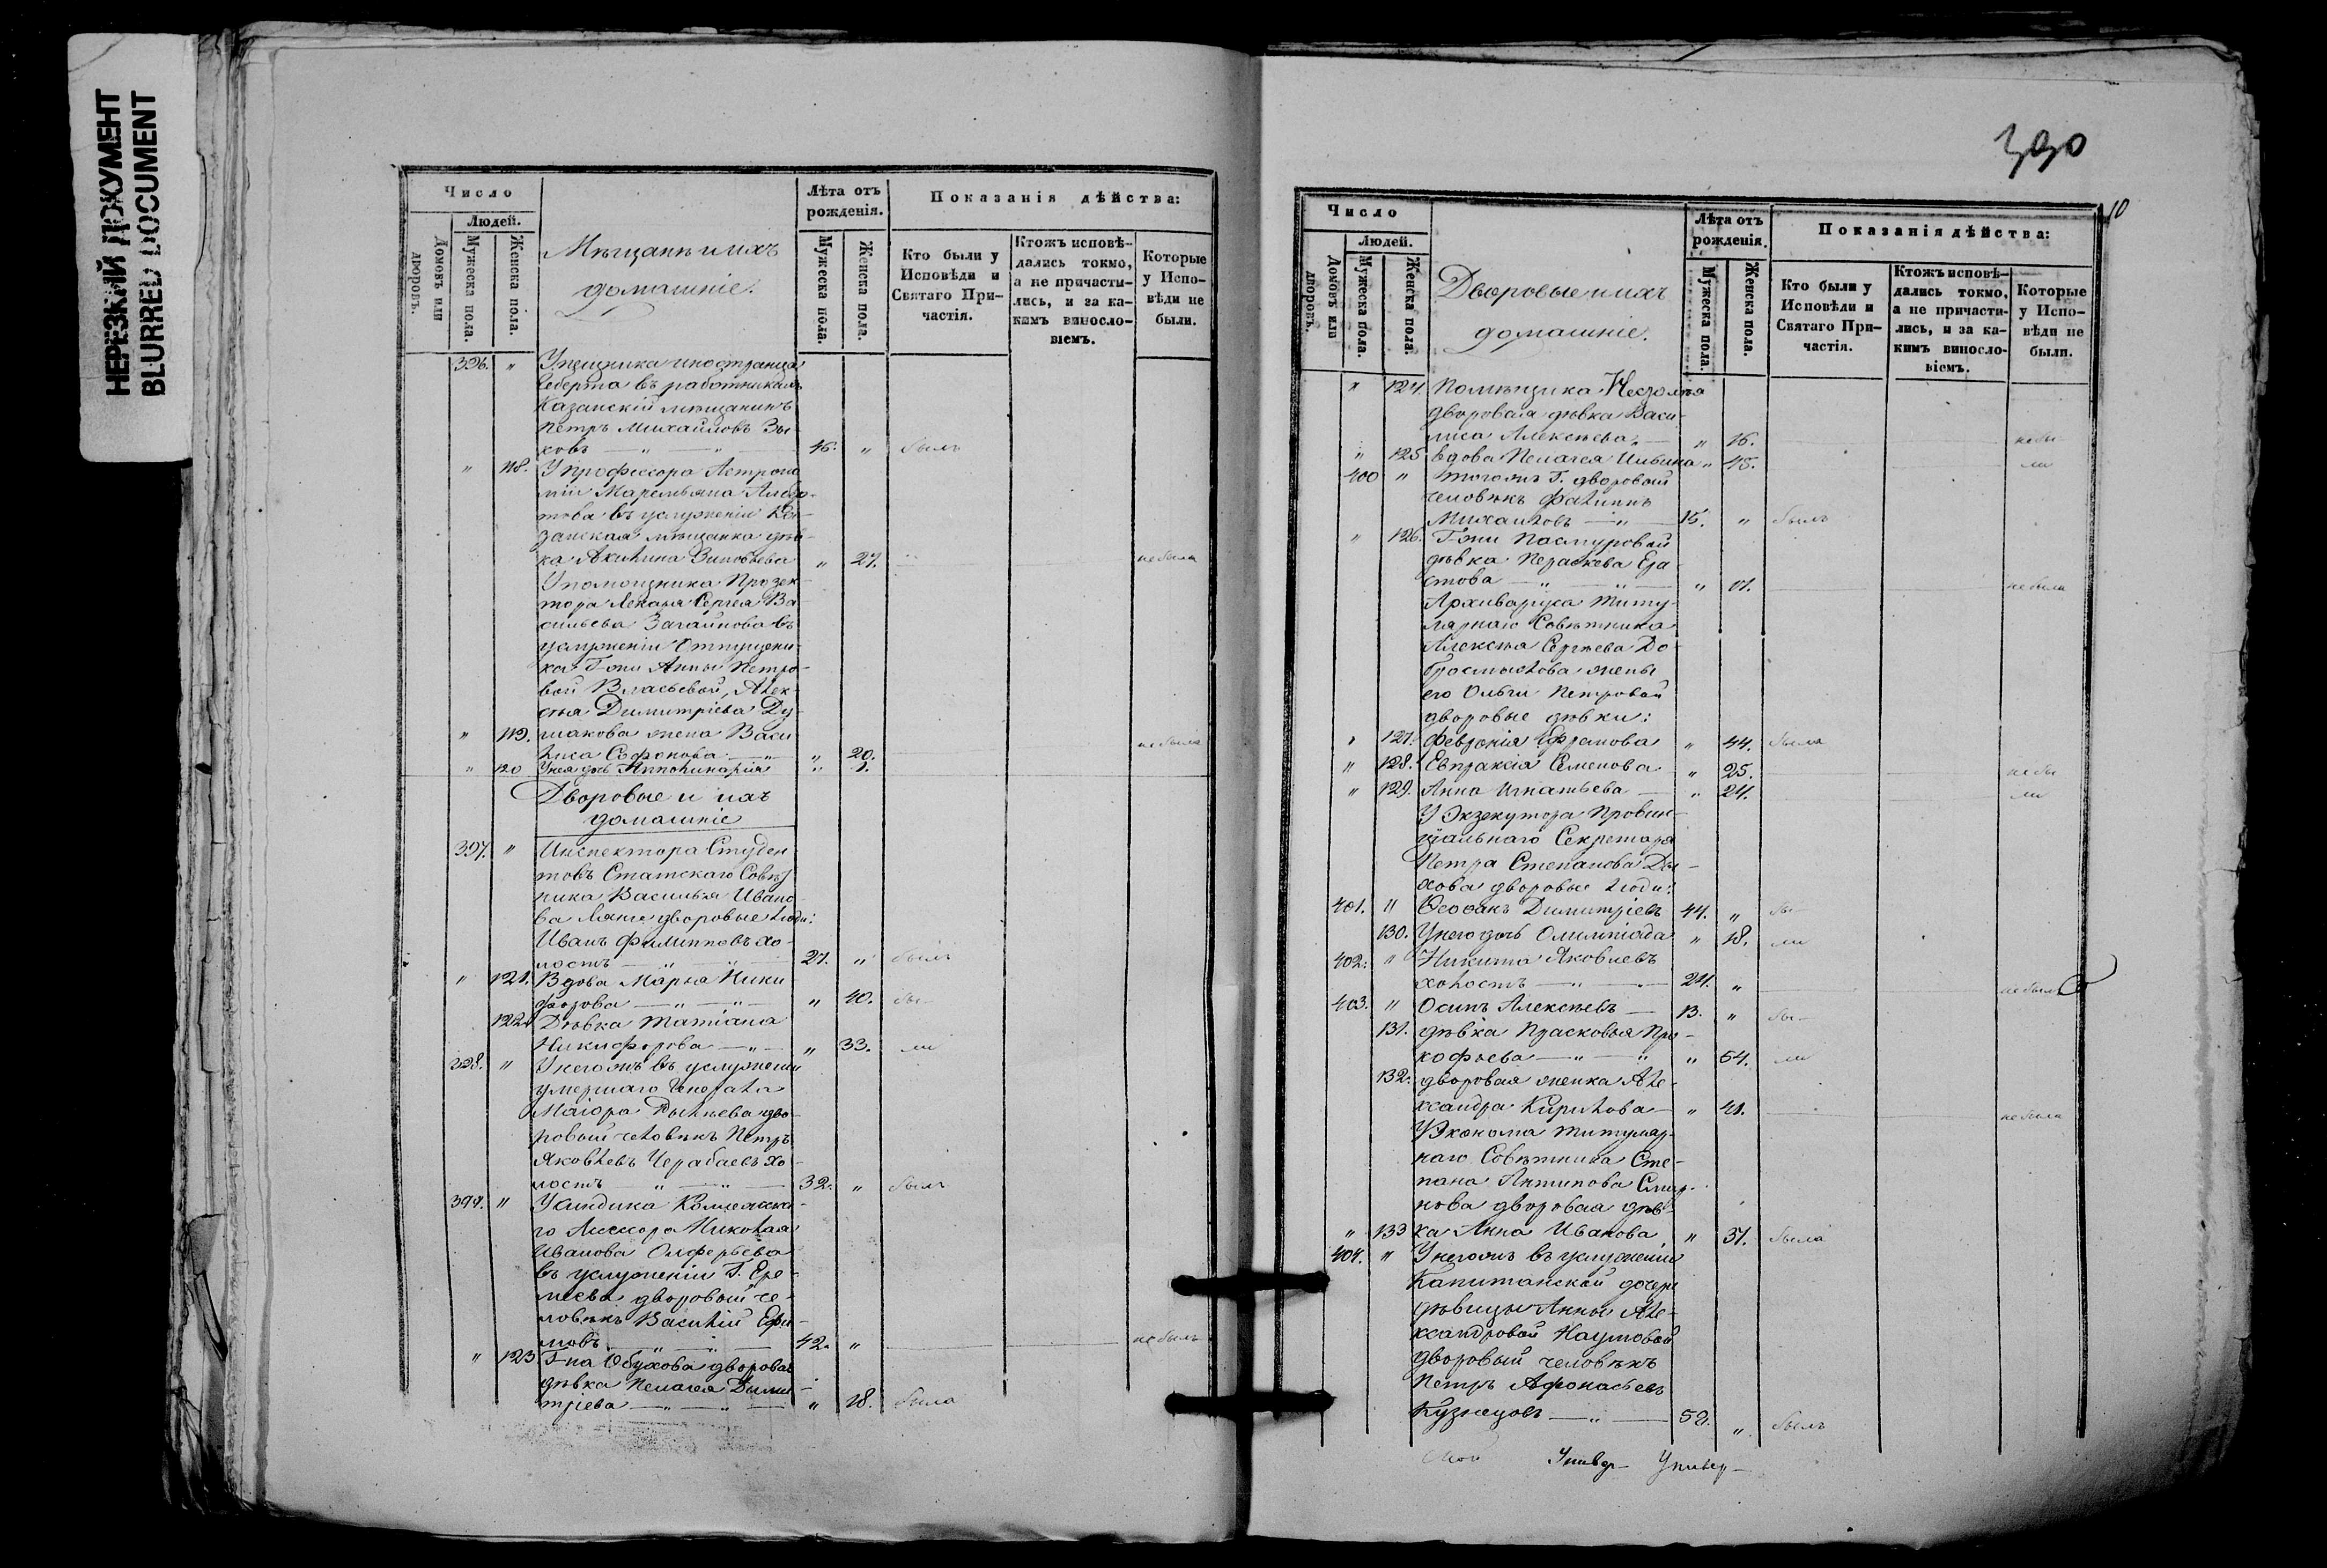 НЕРЕЗКИЙ ДОКУМЕНТ
BLURRED DOCUMENT
Число
Людей.
Домовъ или дворовъ.
Мужеска пола.
Женска пола.
Мѣщане и ихъ
домашніе.
Лѣта отъ рожденія.
Мужеска пола.
Женска пола.
Показанія дѣйства:
Кто были у Исповѣди и Святаго Причастія.
Ктожъ исповѣ-
дались токмо,
а не причасти-
лись, и за ка-
кимъ винosло-
віемъ.
Которые
у Испо-
вѣди не
были.
396. " иностранца
въ работникахъ
Казанскій мѣщанинъ
Петръ Михайловъ Зы-
ковъ 46. " былъ
" 118. У профессора Астроно
міи
въ услуженіи Ка-
занская мѣщанка дѣв-
ка Акилина Зиновьева " 27. не была
У помощника Прозек-
тора Лекаря Сергея Ва
сильева въ
услуженіи Отпущени-
ка Г-жи Анны Петро-
вой Власьевой, Алек-
сѣя Димитріева Ду-
" 119. шакова жена Васи
лиса Софонова " 20. не была
" 120 У нея дочь Апполинарія " 1.
Дворовые и ихъ
домашніе
397. " Инспектора Студен
товъ Статскаго Совѣт
ника Василья Ивано-
ва дворовые люди:
Иванъ Филипповъ хо-
лостъ 27. " былъ
" 121. Вдова Марья Ники
форова " 40. бы-
122. Дѣвка Татіана
Никифорова " 33. ли
398. " У негожъ въ услуженіи
умершаго Генерала
Маіора дво-
ровый человѣкъ Петръ
Яковлевъ Черабаевъ хо-
лостъ 32. " былъ
399. " У Синдика Коллежска-
го Ассесора Николая
Иванова Алферьева
въ услуженіи Г. Ере-
меева дворовый че-
ловѣкъ Василій Ефи-
мовъ 42. " не былъ
" 123 Г-на Обухова дворовая
дѣвка Пелагея Дими-
тріева " 18. была
390
10
Число
Людей.
Домовъ или дворовъ.
Мужеска пола.
Женска пола.
Дворовые и ихъ
домашніе.
Лѣта отъ рожденія.
Мужеска пола.
Женска пола.
Показанія дѣйства:
Кто были у Исповѣди и Святаго Причастія.
Ктожъ исповѣ-
дались токмо,
а не причасти-
лись, и за ка-
кимъ винosло-
віемъ.
Которые
у Испо-
вѣди не
были.
" 124. Помѣщика
дворовая дѣвка Васи-
лиса Алексѣева " 16. не бы-
" 125 вдова Пелагея " 45. ли
400 " тогожъ Г. дворовый
человѣкъ Филиппъ
Михайловъ 15. " былъ
" 126. Г-жи Пасмуровой
дѣвка Параскева Ера
стова " не была
Архиваріуса Титу-
лярнаго Совѣтника
Алексѣя Сергѣева До-
бросмыслова жены
его Ольги Петровой
дворовые дѣвки:
" 127. Февронія Ефремова " 44. была
" 128. Евпраксія Семенова " 25. не бы
" 129. Анна Игнатьева " 24. ли
У Экзекутора Провин-
ціальнаго Секретаря
Петра Степанова
дворовые люди:
401. " Ѳеофанъ Димитріевъ 44. " бы-
130. У него дочь Олимпіада " 18. ли
402. " Никита Яковлевъ
холостъ 24. " не былъ
403. " Осипъ Алексѣевъ 13. " бы-
131. дѣвка Прасковья Про-
кофьева " 54. ли
132. дворовая женка Але-
ксандра Кирилова " 41. не была
У Эконома Титуляр-
наго Совѣтника Сте-
пана Антипова Смир-
нова дворовая дѣв-
" 133 ка Анна Иванова " 37. была
404. " У негожъ въ услуженіи
Капитанской дочери
дѣвицы Анны Але-
ксандровой Наумовой
дворовый человѣкъ
Петръ Афонасьевъ
Кузнецовъ 52. " былъ